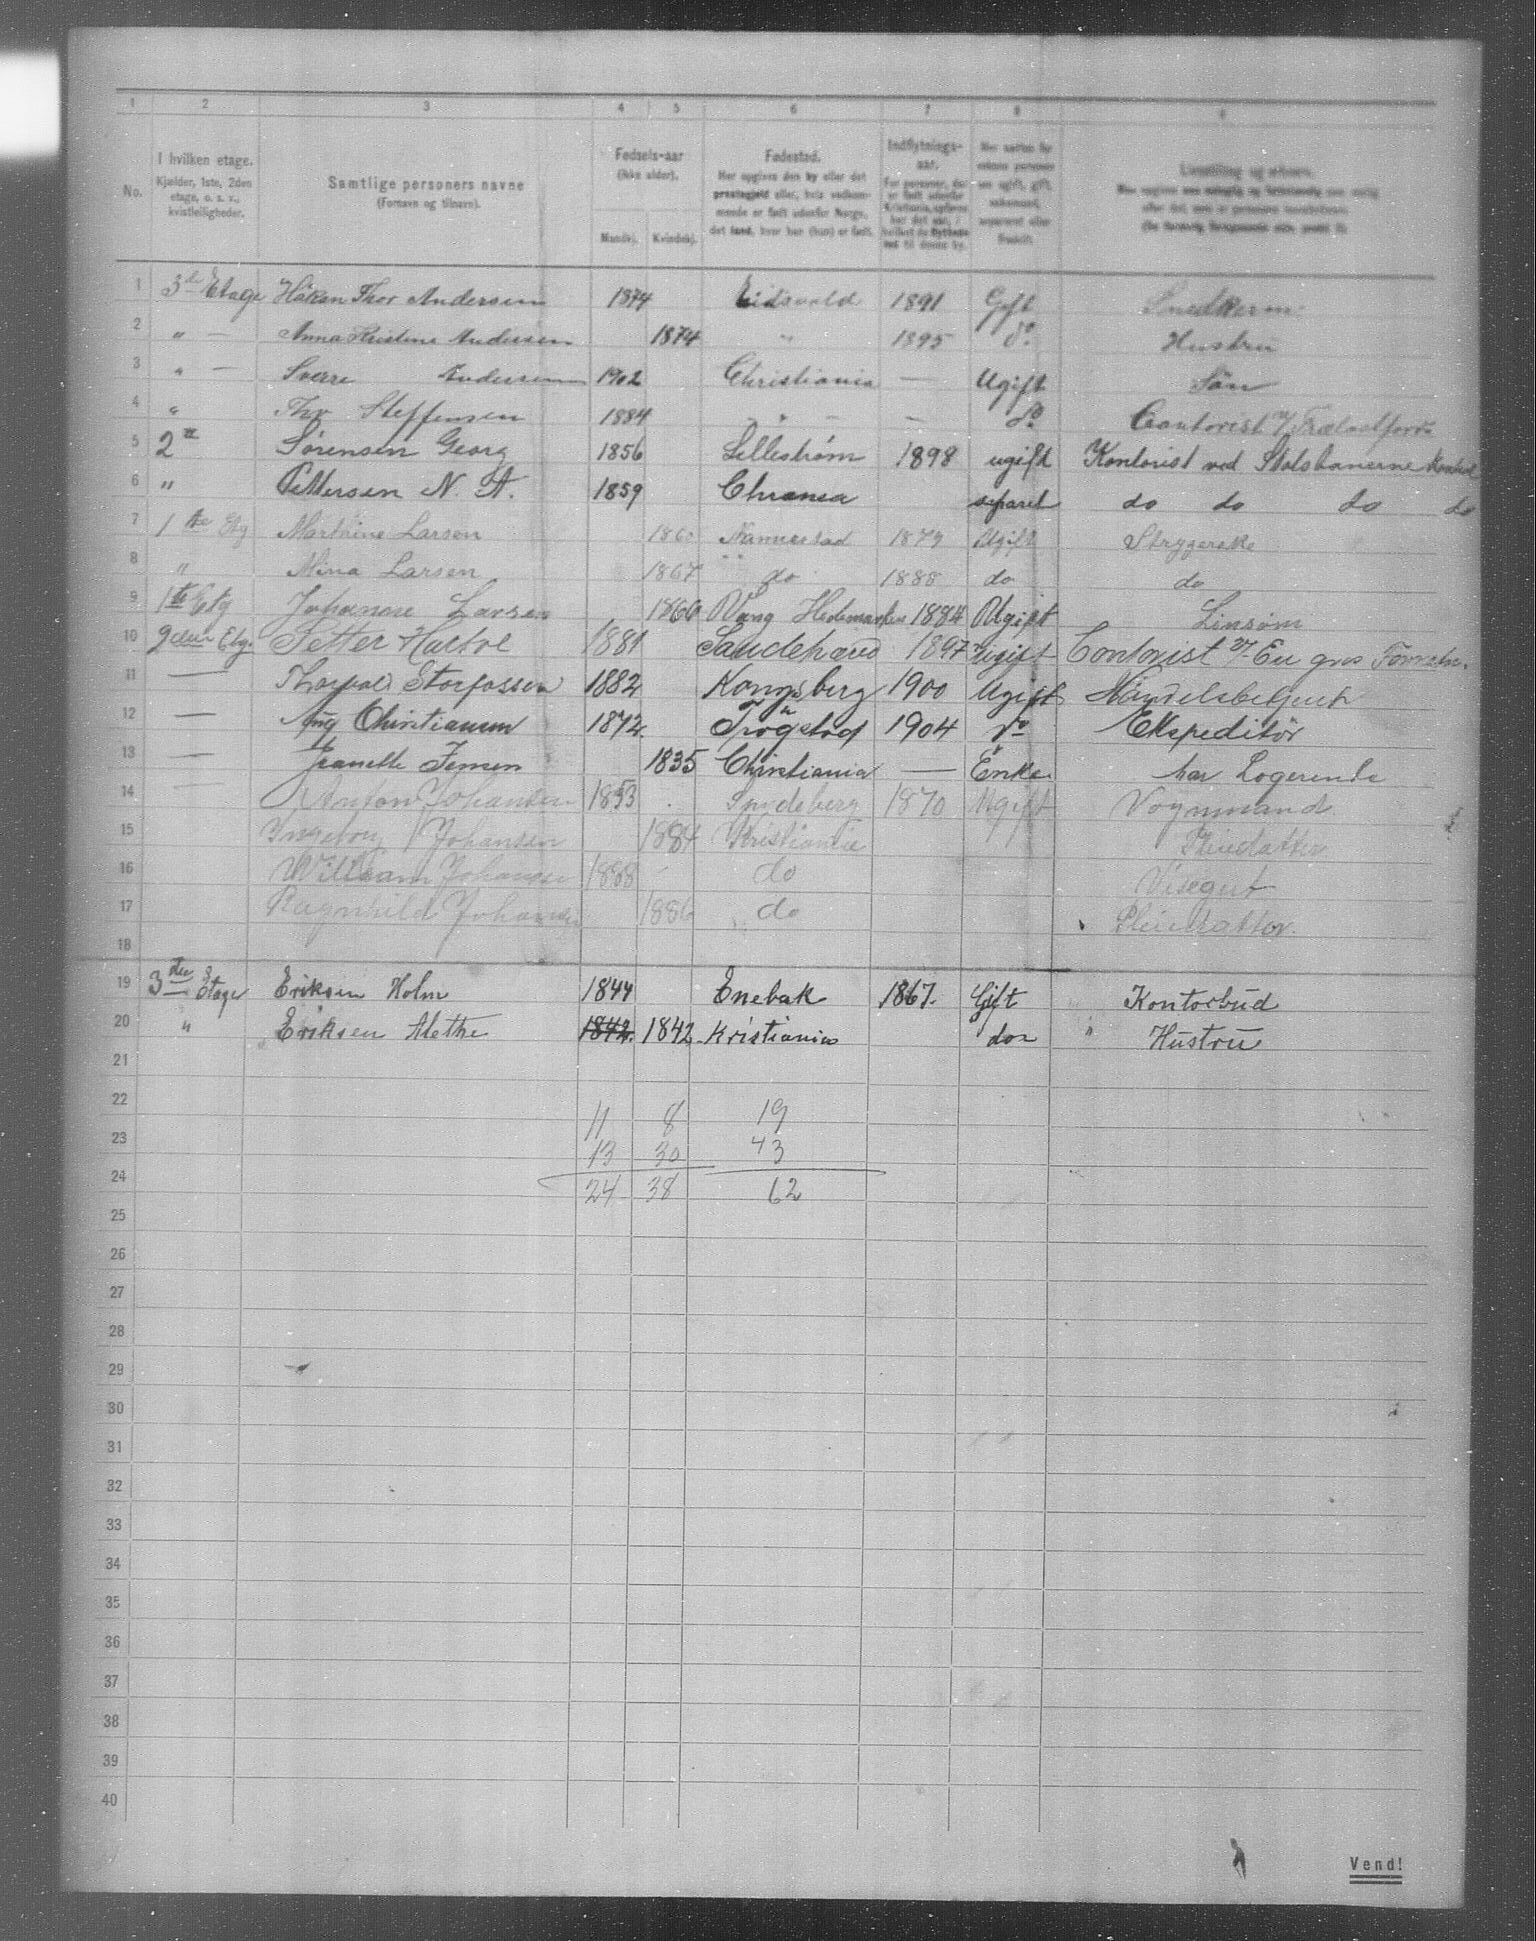 1 2 3 4 5 6 7 8
No.
I hvilken etage.
Kjælder, 1ste, 2den
etage, o. s. v.,
kvistleiligheder.
Samtlige personers navne
(Fornavn og tilnavn).
Fødsels-aar
(ikke alder).
Mandkj. Kvindekj.
Fødested.
Her opgives den by eller det
præstegjeld eller, hvis vedkom-
mende er født udenfor Norge,
det land, hvor han (hun) er født.
Indflytnings-
aar.
For personer, der
er født udenfor
Kristiania, opføres
her det aar, i
hvilket de flyttede
ind til denne by.
Livsstilling og erhverv.
1 3die Etage Håkon Thor Andersen 1874 Eidsvold 1891 Gift Snedkerm
2 " — Anna Kristine Andersen 1874 " 1895 do Hustru
3 " — Sverre Andersen 1902 Christiania — Ugift Sön
4 " Thv Steffensen 1884 " — — do Contorist v/ Trælastforr.
5 2den Sørensen Georg 1856 Lillestrøm 1898 ugift Kontorist ved Statsbanerne Kontrol
6 " Pettersen N. A. 1859 Chrania separet do do do do
7 1ste Etg Marthine Larsen 1860 Nannestad 1879 Ugift Strygerske
8 " Mina Larsen 1867 do 1888 do do
9 1ste Etg Johanne Larsen 1860 Vang Hedemarken 1884 Ugift Linsøm
10 2den Etg. Petter Hartvel 1881 Sandeherred 1897 Ugift Contorist v/ En gros Forretn.
11 — Thorvald Storfossen 1882 Kongsberg 1900 Ugift Handelsbetjent
12 — Aug Christiansen 1872. Trögstad 1904 do Ekspeditör
13 — Jeanette Jensen 1835 Christiania — Enke har Logerende
14 — Anton Johansen 1853 Spydeberg 1870 Ugift Vognmand
15 Ingeborg Johansen 1884 Kristiania Pleiedatter
16 William Johansen 1888 do Visegut
17 Ragnhild Johansen 1886 do Pleiedatter
18
19 3die Etage Eriksen Holm 1844 Enebak 1867. Gift Kontorbud
20 " Eriksen Alethe 1842. 1842. Kristiania do " Hustru
21
22 11 8 19
23 13 30 43
24 24 38 62
25
26
27
28
29
30
31
32
33
34
35
36
37
38
39
40
Vend!